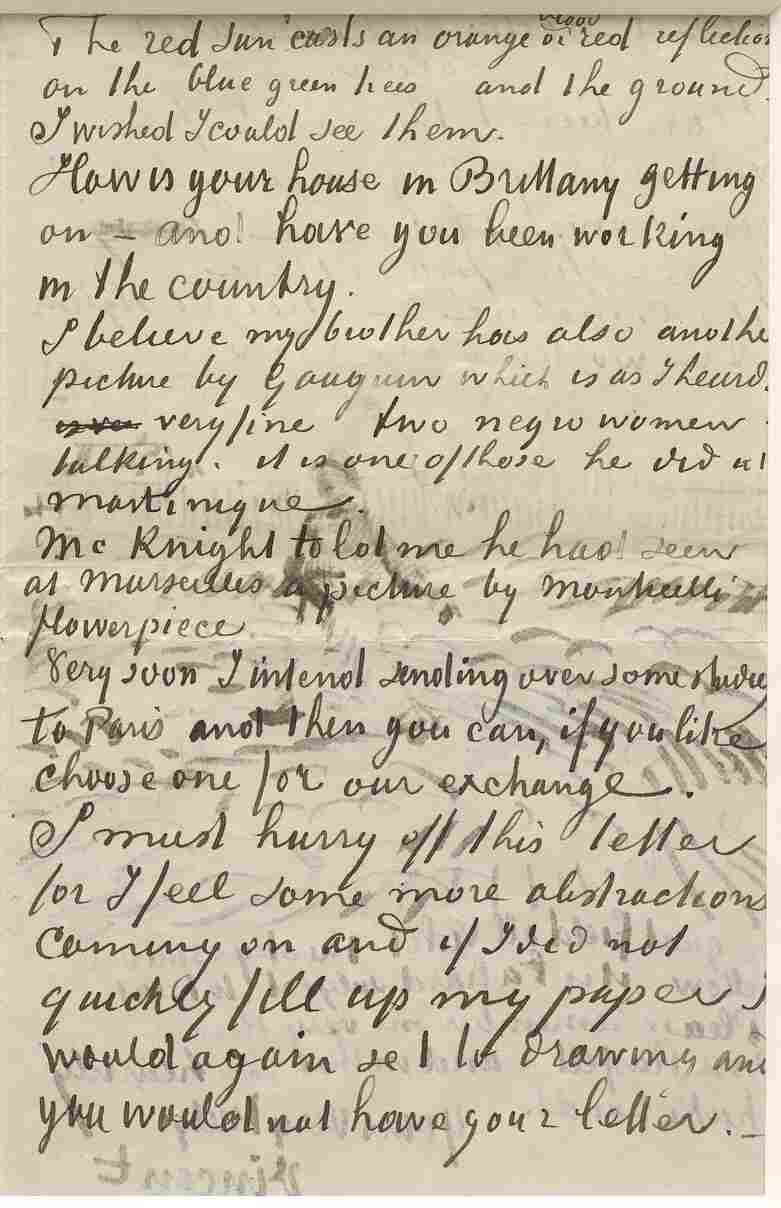 The red sun casts an orange or blood red reflection
on the blue green trees and the ground.
I wished I could see them.
How is your house in Brittany getting
on – and have you been working
in the country.
I believe my brother has also anothe
picture by Gauguin which is as I heard
very fine two negro women
talking. it is one of those he did at
Martinique.
Mc Knight told me he had seen
at Marseilles a picture by Monticelli
flowerpiece.
Very soon I intend sending over some studies
to Paris and then you can, if you like
choose one for our exchange.
I must hurry off this letter
for I feel some more abstractions
coming on and if I did not
quickly fill up my paper I
would again set to drawing and
you would not have your letter. –
Vincent